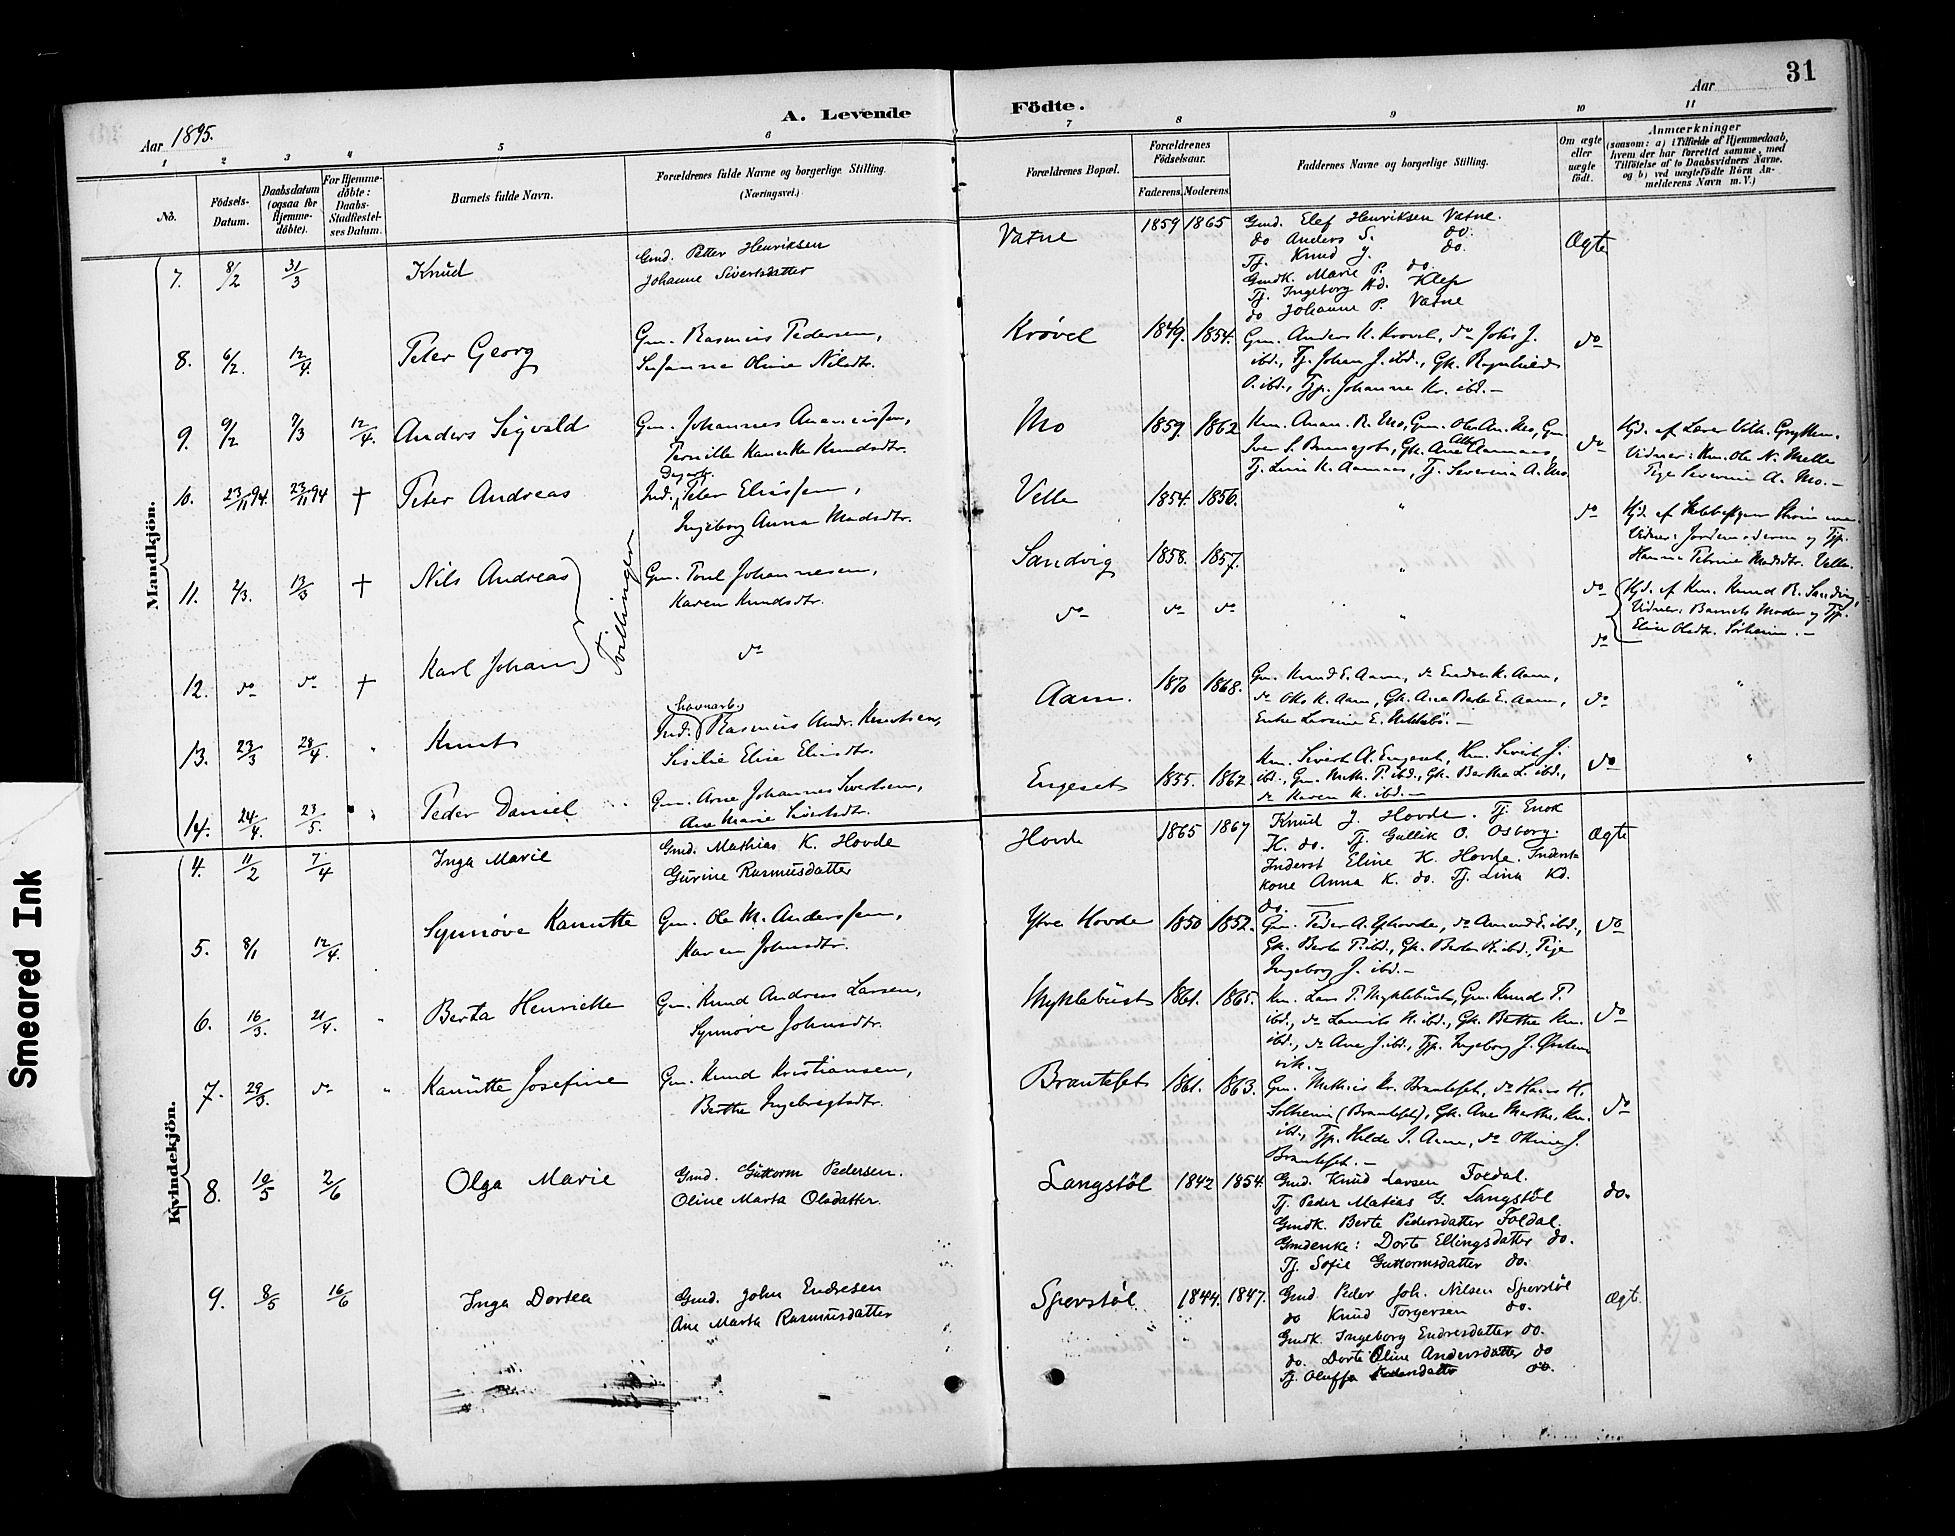 31
Aar 1895.
A. Levende
Födte.
Aar
1 2 3 4 5 6 7 8 9 10 11
No.
Födsels-
Datum.
Daabsdatum
(ogsaa for
Hjemme-
döbte).
For Hjemme-
döbte:
Daabs-
Stadfæstel-
ses Datum.
Barnets fulde Navn.
Forældrenes fulde Navne og borgerlige Stilling.
(Næringsvei.)
Forældrenes Bopæl.
Forældrenes
Födselsaar.
Faderens. Moderens.
Faddernes Navne og borgerlige Stilling.
Om ægte
eller
uægte
födt.
Anmærkninger
(saasom: a) i Tilfælde af Hjemmedaab,
hvem der har forrettet samme, med
Tilföielse af to Daabsvidners Navne.
og b) ved uægtefödte Börn An-
melderens Navn m. V.)
Mandkjön.
7. 8/2 31/3 Knud
Gmd. Petter Henriksen
Johanne Sivertsdatter
Vatne 1859 1865
Gmd. Elef Henriksen Vatne.
do Anders S. do.
Tj. Knud J. do.
Gmdk. Marie P. do.
Tj. Ingeborg Kd. Klep
do Johanne P. Vatne
Ægte
8. 6/2. 12/4. Peter Georg
Gm. Rasmus Pedersen,
Susanne Oline Nilsdtr.
Krövel 1849. 1854.
Gm. Anders K. Krovel, do Johs J.
ibd., Tj. Johan J. ibd., Gk. Ragnhild
O. ibd., Tjp. Johanne Kr. ibd. –
do
9. 9/2 7/3 12/4. Anders Sigvald
Gm. Johannes Ananiassen,
Pernille Kanutte Knudsdtr.
Mo 1859. 1862
Km. Anan. R. Mo, Gm. Ole An. Mo, Gm.
Tj. Lina K. Aamaas, Tj. Severina A. Mo
do
Vidner: Km. Ole N. Melle
Pige Severine A. Mo. –
10. 23/11 94. 23/11 94 † Peter Andreas
Dagarb.
Ind. Peter Eliassen,
Ingeborg Anna Madsdtr.
Velle 1854. 1856.
"
do
Vidner: Jordemoderen og Tjp.
Hanna Petrine Madsdtr. Velle.
11. 2/3. 13/3 † Nils Andreas
Tvillinger
Gm. Poul Johannesen,
Karen Knudsdtr.
Sandvig 1858. 1857.
"
do
Hjd. af Km. Knud R. Sandvig,
Vidner: Barnets Moder og Tjp.
Elise Olsdtr. Sörheim. –
12. do do † Karl Johan
do
do do do
"
do
13. 23/3 28/4. " Knut
havnarb.
Ind. Rasmus Andr. Knutsen,
Sisilie Elise Eliasdtr.
Aam. 1870 1868.
Gm. Knud E. Aam, do Endre K. Aam,
do Ole K. Aam, Gk. Ane Berte E. Aam,
do
"
14. 24/4. 23/5. " Peder Daniel
Gm. Arne Johannes Sivertsen,
Ane Marie Sivertsdtr.
Engeset 1855. 1862.
Km. Sivert A. Engeset, Km. Sivert J.
ibd., Gm. Math. P. ibd., Gk. Berthe L. ibd.,
do Karen K. ibd. –
do
"
Kvindekjön.
4. 11/2 7/4 Inga Marie
Gmd. Mathias K. Hovde
Gurine Rasmusdatter
Hovde 1865 1867
Knud J. Hovde. Tj. Enok
K. do. Tj. Gullik O. Osborg.
Inderst Eline K. Hovde. Inderst-
kone Anna K. do. Tj. Lina Kd.
do. —
Ægte
5. 8/1 12/4. Synnöve Kanutte
Gm. Ole M. Anderssen,
Karen Johnsdtr.
Ytre Hovde 1850 1852.
Gm. Peder A. Y. Hovde, do Amund E. ibd.,
Gk. Berte P. ibd., Gk. Berte K. ibd., Pige
Ingeborg J. ibd. –
do
6. 16/3. 21/4. " Berta Henriette
Gm. Knud Andreas Larsen,
Synnöve Johnsdtr.
Myklebust 1861. 1865.
Km. Lars P. Myklebust, Gm. Knud P.
ibd., do Laurits K. ibd., Gk. Berthe Kn.
ibd., do Ane J. ibd., Tjp. Ingeborg J. Örsten-
vik. –
do
7. 29/3. do " Kanutte Josefine
Gm. Knud Kristiansen,
Berthe Ingebregtsdtr.
Brauteset 1861. 1863.
Gm. Mathias Kr. Brauteset, do Hans H.
Solheim (Brauteset), Gk. Ane Marthe, Kn.
ibd., Tjp. Hilde I. Aam, do Oline J.
Brauteset. –
do
8. 10/5 2/6 Olga Marie
Gmd. Guttorm Pedersen.
Oline Marta Olsdatter
Langstöl 1842 1854.
Gmd. Knud Larsen Foldal.
Tj. Peder Matias G. Langstöl
Gmdk. Berte Pedersdatter Foldal.
Gmdenke: Dorte Ellingsdatter do.
Tj. Sofie Guttormsdatter do.
do.
9. 8/5 16/6 Inga Dortea
Gmd. John Endresen
Ane Marta Rasmusdatter
Sperstöl 1844. 1847.
Gmd. Peder Joh. Nilsen Sperstöl
do Knud Torgersen do.
Gmdk. Ingeborg Endresdatter do.
do. Dorte Oline Andersdatter do
Tj. Oluffa Pedersdatter do.
Ægte.
Smeared Ink